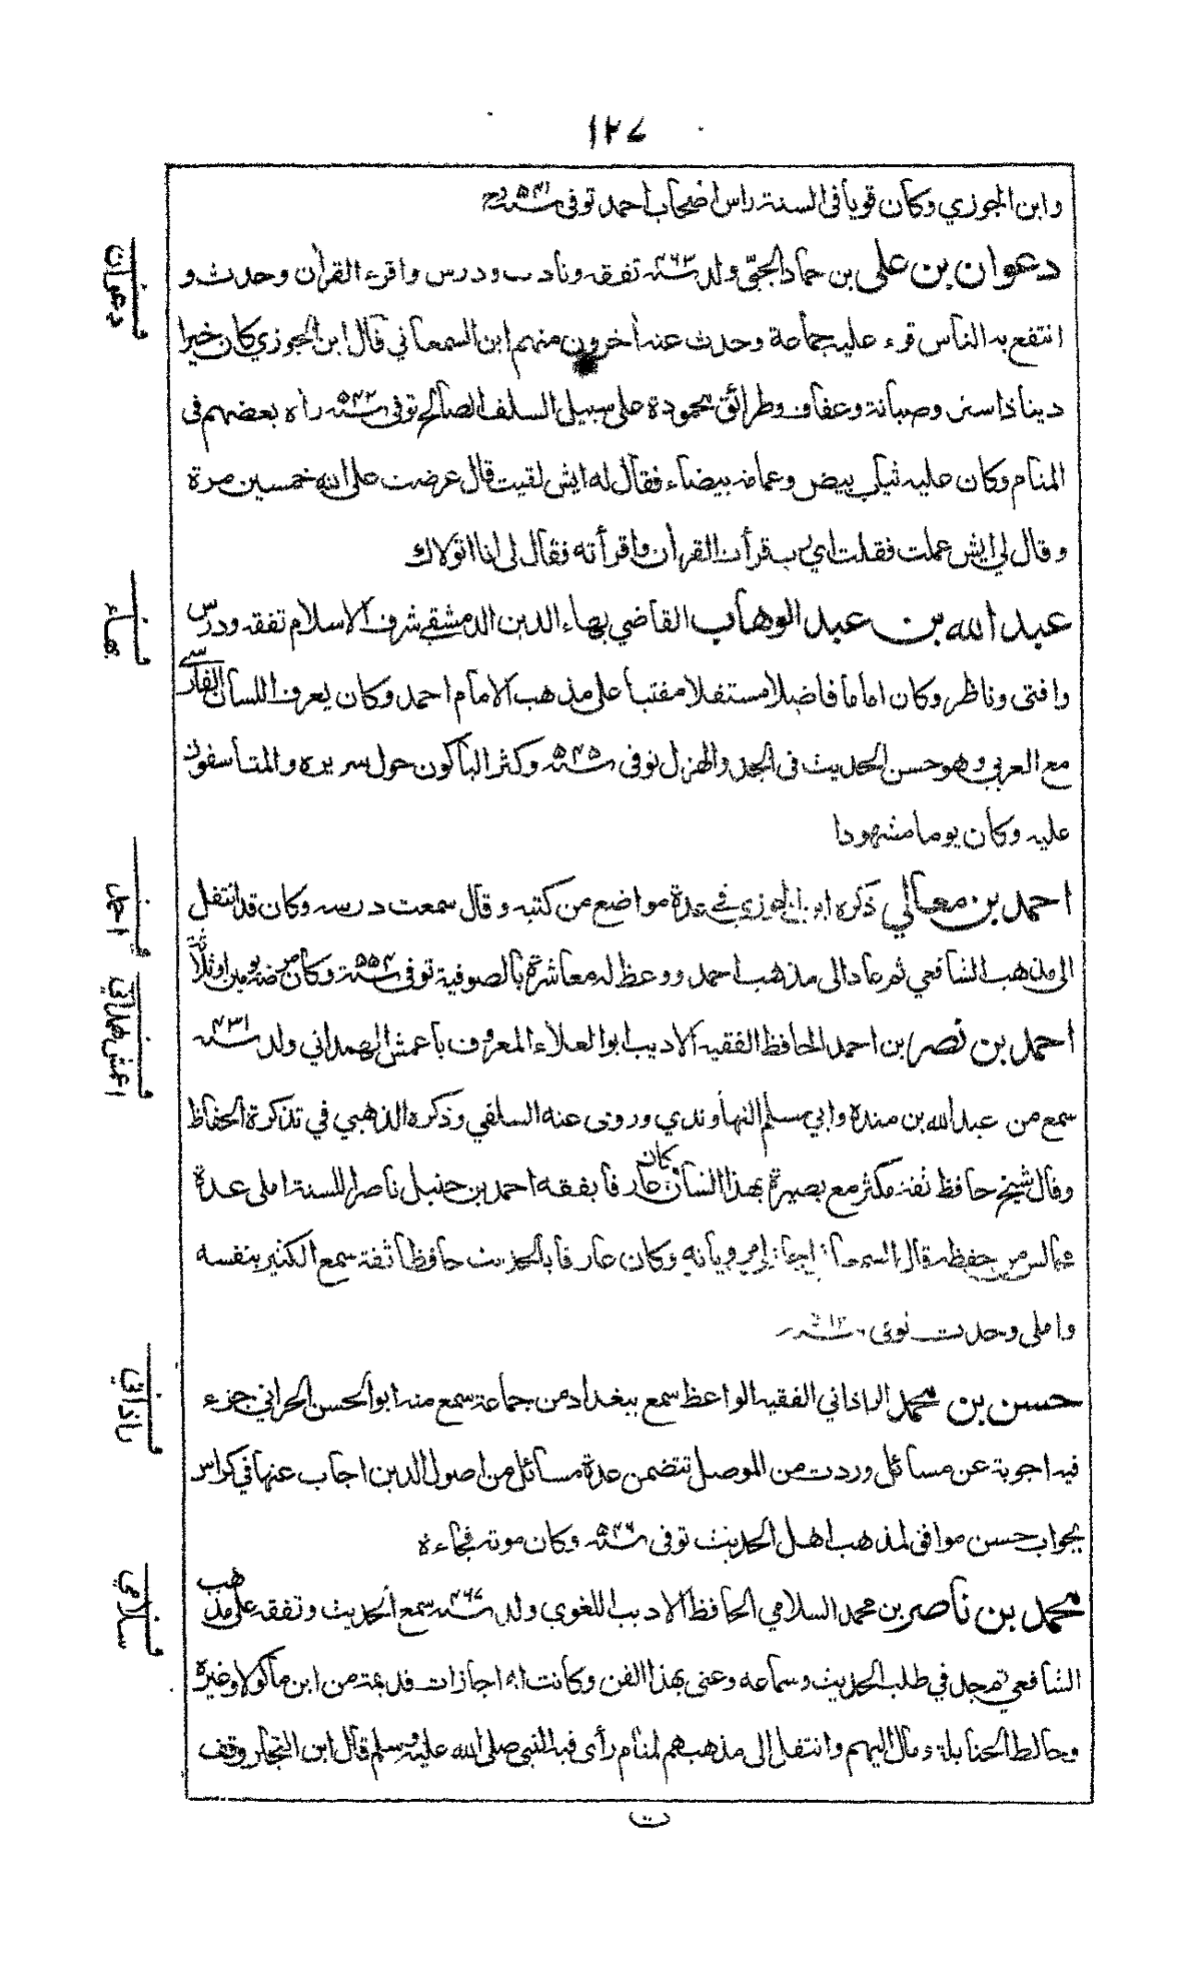 ١٢٧
وابن الجوزي وكان قويا في السنة راس اصحاب احمد توفى سنه ٥٣١ ح
دعوان بن علي بن حماد الجبّي ولد سنه ٤٦٣ تفقه وتادب ودرس واقرء القران وحدث و
دعوان
انتفع به الناس قرء عليه جماعة وحدث عنه اخرون منهم ابن السمعاني قال ابن الجوزي كان خيرا
دينا ذا ستر وصيانة وعفاف وطرائق محمودة على سبيل السلف الصالح توفى سنه ٥٤٢ راه بعضهم فى
المنام وكان عليه ثياب بيض وعمامة بيضاء فقال له ايش لقيت قال عرضت على الله خمسين مرة
وقال لي ايش عملت فقلت اي رب قرأت القران واقرأته فقال لي انا اتولاك
عبد الله بن عبد الوهاب القاضي بهاء الدين الدمشقي شرف الاسلام تفقه ودرس
بهاء
وافتى وناظر وكان اماما فاضلا مستقلا مفتيا على مذهب الامام احمد وكان يعرف اللسان الفارسي
مع العربي وهو حسن الحديث في الجد والهزل توفى سنه ٥٤٥ وكثر الباكون حول سريره والمتأسفون
عليه وكان يوما مشهودا
احمد بن معالي ذكره ابن الجوزي في عدة مواضع من كتبه وقال سمعت درسه وكان قد انتقل
احمد
الى مذهب الشافعي ثم عاد الى مذهب احمد ووعظ له معاشرة بالصوفية توفى سنه ٥٥٤ وكان مرضه يومين او ثلاثة
احمد بن نصر بن احمد الحافظ الفقيه الاديب ابو العلاء المعروف باعمش الهمداني ولد سنه ٤٣١
اعمش همداني
سمع من عبد الله بن مندة وابي مسلم النهاوندي وروى عنه السلفي وذكره الذهبي في تذكرة الحفاظ
وقال شيخ حافظ ثقة مكثر مع بصيرة بهذا الشان كان عارفا بفقه احمد بن حنبل ناصرا للسنة املى عدة
مجالس من حفظه قال السمعاني اجاز لي مروياته وكان عارفا بالحديث حافظا ثقة سمع الكثير بنفسه
واملى وحدث توفى
حسن بن محمد الراذاني الفقيه الواعظ سمع ببغداد من جماعة سمع منه ابو الحسن الحراني جزء
راذاني
فيه اجوبة عن مسائل وردت من الموصل تتضمن عدة مسائل من اصول الدين اجاب عنها في كراس
بجواب حسن موافق لمذهب اهل الحديث توفى سنه ٥٤٦ وكان موته فجاءة
محمد بن ناصر بن محمد السلامي الحافظ الاديب اللغوي ولد سنه ٤٦٧ سمع الحديث وتفقه على مذهب
سلامي
الشافعي ثم جد في طلب الحديث وسماعه وعنى بهذا الفن وكانت له اجازات قديمة من ابن ماكولا وغيره
وخالط الحنابلة ومال اليهم وانتقل الى مذهبهم لمنام رأى فيه النبي صلى الله عليه وسلم قال ابن النجار وقف
ت